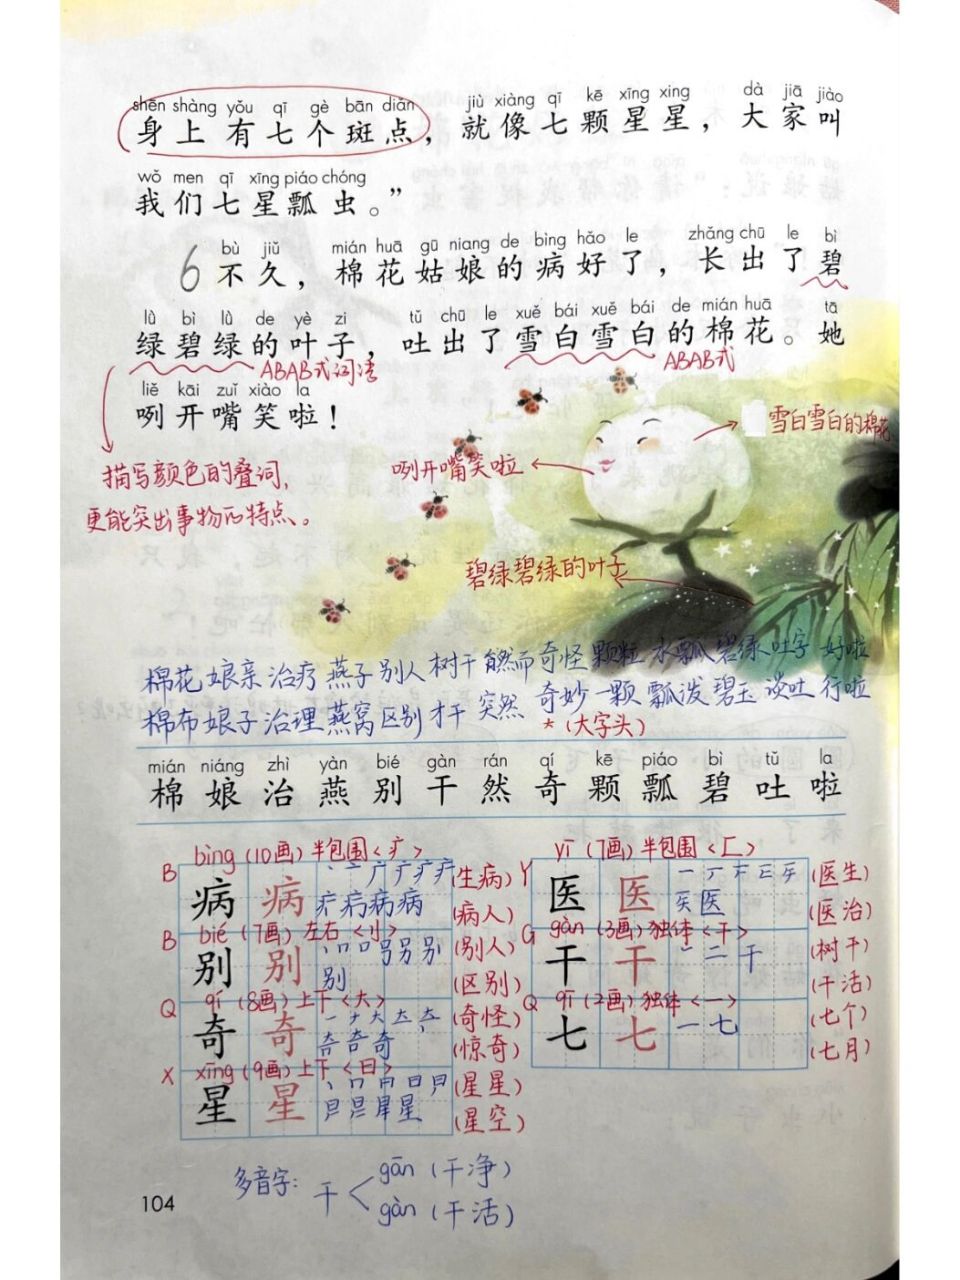 shēn shàng yǒu qī gè bān diǎn jiù xiàng qī kē xīng xing dà jiā jiào
身上有七个斑点，就像七颗星星，大家叫
wǒ men qī xīng piáo chóng
我们七星瓢虫。”
bù jiǔ mián huā gū niang de bìng hǎo le zhǎng chū le bì
6 不久，棉花姑娘的病好了，长出了碧
lǜ bì lǜ de yè zi tǔ chū le xuě bái xuě bái de mián huā tā
绿碧绿的叶子，吐出了雪白雪白的棉花。她
ABAB式词语 ABAB式
liě kāi zuǐ xiào la
咧开嘴笑啦！
雪白雪白的棉花
咧开嘴笑啦
描写颜色的叠词，
更能突出事物的特点。
碧绿碧绿的叶子
棉花 娘亲 治疗 燕子 别人 树干 然而 奇怪 颗粒 水瓢 碧绿 吐字 好啦
棉布 娘子 治理 燕窝 区别 才干 突然 奇妙 一颗 瓢泼 碧玉 谈吐 行啦
*（大字头）
mián niáng zhì yàn bié gàn rán qí kē piáo bì tǔ la
棉 娘 治 燕 别 干 然 奇 颗 瓢 碧 吐 啦
bìng（10画）半包围〈疒〉 yī（7画）半包围〈匚〉
B 病 病 （生病） Y 医 医 （医生）
（病人） （医治）
bié（7画）左右〈刂〉 gàn（3画）独体〈干〉
B 别 别 别 （别人） G 干 干 一 二 干 （树干）
（区别） （干活）
qí（8画）上下〈大〉 qī（2画）独体〈一〉
Q 奇 奇 （奇怪） Q 七 七 一 七 （七个）
（惊奇） （七月）
xīng（9画）上下〈日〉
X 星 星 （星星）
（星空）
多音字： 干 gān（干净）
gàn（干活）
104